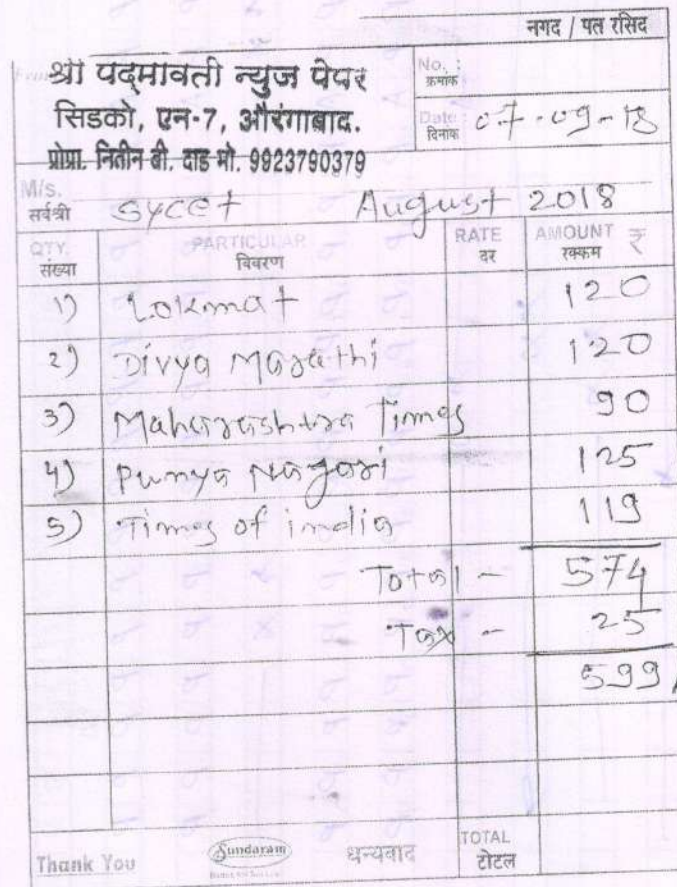 नगद / पत रसिद
श्री पद्मावती न्युज पेपर
सिडको, एन-7, औरंगाबाद.
प्रोप्रा. नितीन बी. दाड मो. 9923790379
No. :
क्रमांक
Date :
दिनांक 07-09-18
M/s.
सर्वश्री SYCET August 2018
QTY. PARTICULAR RATE AMOUNT ₹
संख्या विवरण दर रक्कम
1) Lokmat 120
2) Divya Marathi 120
3) Maharashtra Times 90
4) Punya Nagari 125
5) Times of india 119
Total - 574
Tax - 25
599/
Thank You Sundaram धन्यवाद TOTAL
टोटल